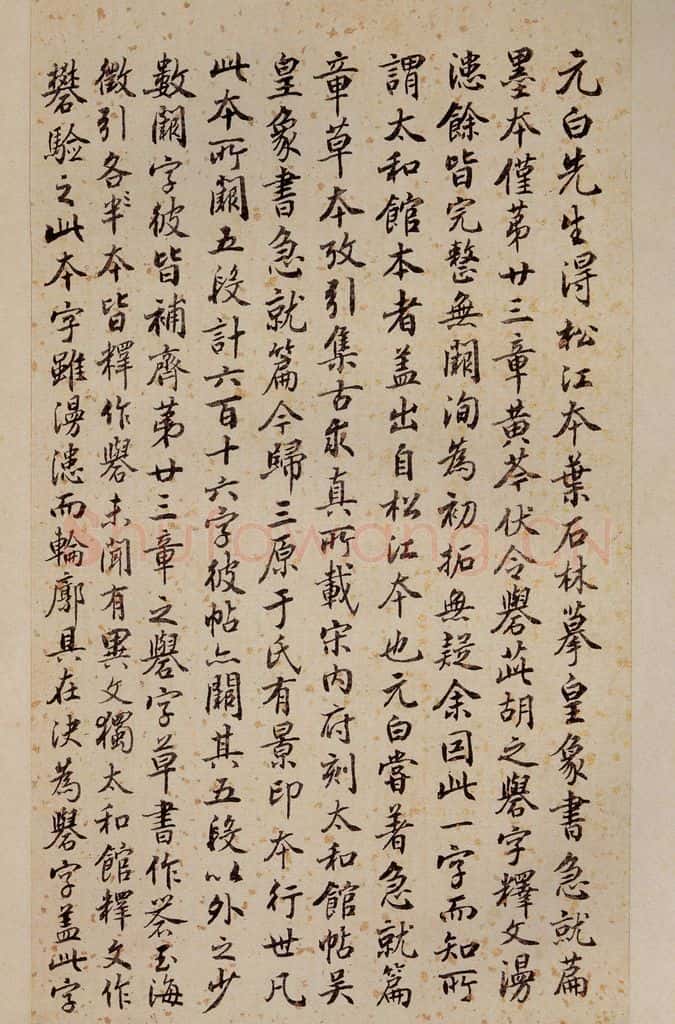 元白先生得松江本葉石林摹皇象書急就篇
墨本僅苐廿三章黄芩伏令礜茈胡之礜字釋文漫
漶餘皆完整無闕洵為初拓無疑余因此一字而知所
謂太和館本者盖出自松江本也元白嘗著急就篇
章草本攷引集古求真所載宋内府刻太和館帖吴
皇象書急就篇今歸三原于氏有景印本行世凡
此本所闕五段計六百十六字彼帖亦闕其五段以外之少
數闕字彼皆補齊苐廿三章之礜字草書作玉海
徵引各本皆釋作礜未聞有異文獨太和館釋文作
礬驗之此本字雖漫漶而輪廓具在決為礜字盖此字
shufawang.CN